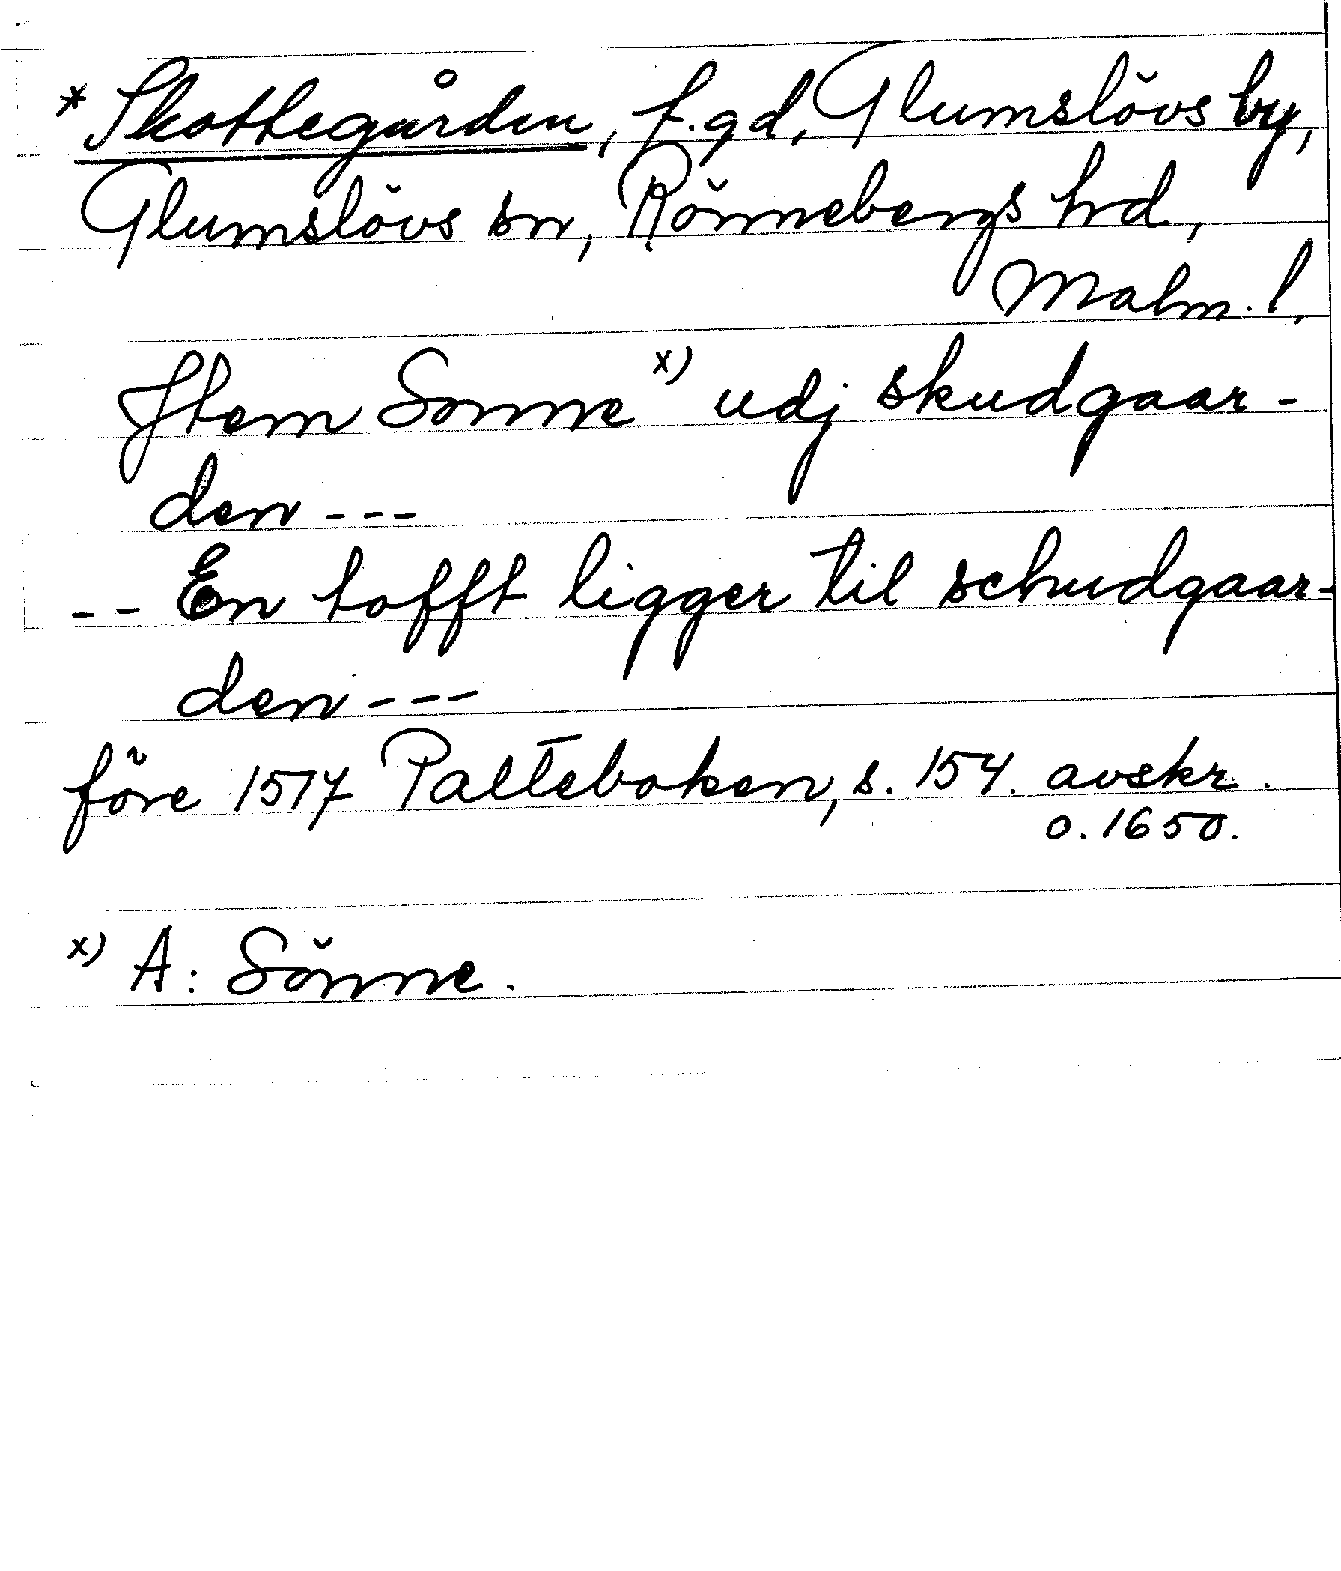 * Skottegården, f.gd, Glumslövs by,
Glumslövs sn, Rönnebergs hrd,
Malm. l.
Jtem Sonne x) udj skudgaar-
den ---
-- En tofft ligger til schudgaar-
den ---
före 1517 Palteboken, s. 154. avskr.
o. 1650.
x) A: Sönne.